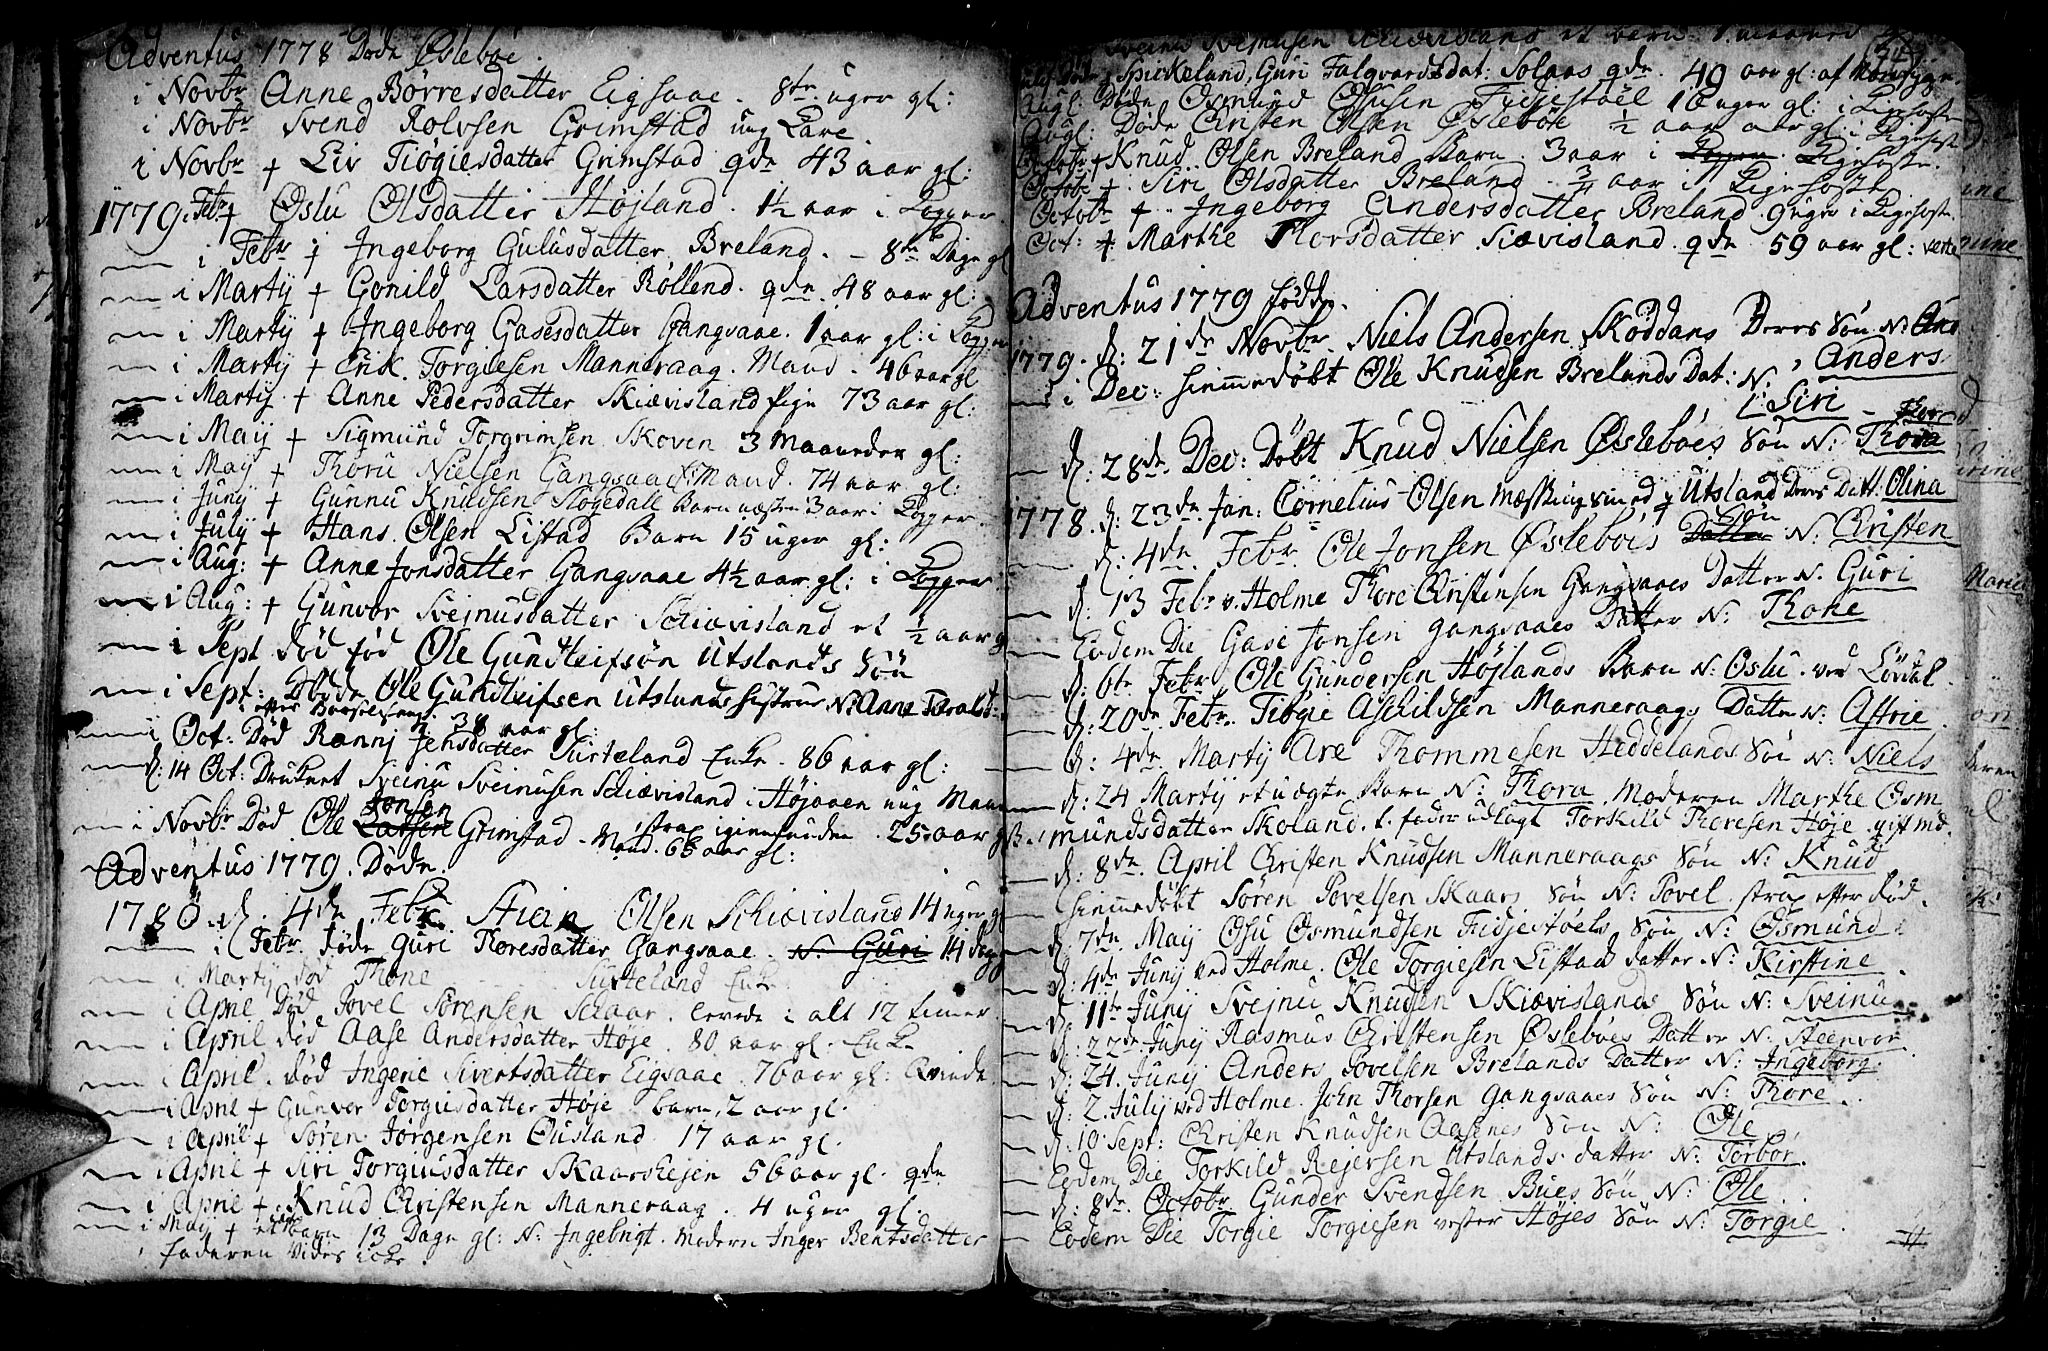 Adventus 1778 Døde Øslebøe.
i Novbr Anne Børresdatter Eigsaae. 8te uger gl:
i Novbr Svend Rolvsen Grimstad ung Karl
i Novbr + Liv Tiøgiesdatter Grimstad qde 43 aar gl:
1779. Febr + Oslu Olsdatter Højland. 1½ aar i Kopper
i Febr + Ingeborg Gulusdatter Breland. 8te Dage gl
i Martij + Gonild Larsdatter Røllend. qde 48 aar gl:
i Martij + Ingeborg Gasesdatter Gangsaae. 1 aar gl: i Kopper
i Martij + Erik Torgiesen Manneraag. Mand. 46 aar gl
i Martij + Anne Pedersdatter Skiævisland Pige 73 aar gl:
i Maij + Sigmund Torgrimsen Skoven 3 Maaneder gl:
i Maij + Thoru Nielsen Gangsaae Mand. 74 aar gl:
i Junij + Gunnu Knudsen Stogedall Barn næsten 3 aar i Kopper
i Julij + Hans Olsen Listad Barn 15 uger gl:
i Aug: + Anne Jonsdatter Gangsaae 4½ aar gl: i Kopper
i Aug: + Gunvor Svejnusdatter Schiævisland et ½ aar g
i Sept død fød Ole Gundleifsøn Utslands Søn
i Sept: Døde Ole Gundleifsen Utslands hustrue N: Anne
i efter Barselseng 38 aar gl:
i Oct: Død Rannj Jensdatter Surteland Enke. 86 aar gl:
d: 14 Oct: Druknet Sveinu Sveinusen Schiævisland i Højaaen ung Mand
strax igienfunden 25 aar g
i Novbr Død Ole Larsen Jonsen Grimstad. Mand. 66 aar gl:
Adventus 1779. Døde.
1780 d. 4de Febr Stian Olsen Schiævisland 14 uger gl
i Febr døde Guri Thoresdatter Gangsaae. N: Guri 14 dage
i Martij død Thone Surteland Enke
i April Død Povel Sørensen Schaar. levede i alt 12 timer
i April død Aase Andersdatter Høje. 80 aar gl. Enke
i April. død Ingerie Sivertsdatter Eigsaae. 76 aar gl: Qvinde
i April + Gunvor Torgiusdatter Høje barn, 2 aar gl.
i April + Søren Jørgensen Øusland. 17 aar gl.
i April + Siri Torgiusdatter Skaarshejen 56 aar gl. qde
i April + Knud Christensen Manneraag. 4 uger gl.
i Maij + et barn 13 Dage gl: N: Ingebrigt. Modern Inger Bentsdatter
faderen
Sveinu Svejnusen Schiævisland et barn 1 maaned
Spirkeland, Guri Falqvardsdat: Solaas qde. 49 aar gl:
Augt: Døde Osmund Osusen Fidjestøel 16 uger gl: i Kighoste
Augt: Døde Christen Olsen Øslebøe ½ aar gl: i Kighoste
+ Knud Olsen Breland Barn 3 aar i Kopper Kighoste.
Octobr + Siri Olsdatter Breland ¾ aar i Kighoste
Octobr + Ingeborg Andersdatter Breland 9 uger i Kighoste.
Oct: + Marthe Thorsdatter Siævisland qde 59 aar gl: verte
Adventus 1779 fødde.
1779. d: 21de Novbr Niels Andersen Skoddans Deres Søn N:
Anders
i Dec: hiemmedøbt Ole Knudsen Brelands Dat: N:
Siri
d: 28de Dec: Døbt Knud Nielsen Øslebøes Søn N: Thora Thore
1778. d: 23de Jan: Cornelius Olsen Messkingsmed Utsland Deres Datt: Olina
d: 4de Febr. Ole Jonsen Øslebøes Datter Søn N: Christen
d: 13 Febr. v. Holme Thore Christensen Gangsaaes Datter N. Guri
Eodem Die Gase Jonsen Gangsaaes Datter N: Thone
d: 6te Febr Ole Gundersen Højlands Barn N: Oslu. ved Løvdal
d: 20de Febr. Tiøgie Aschildsen Manneraags Datter N: Astrie
d: 4de Martij Are Thommesen Heddelands Søn N: Niels
d: 24 Martij et uægte Barn N: Thora. Moderen Marthe Osm
mundsdatter Skoland. t. fader udlagt Torkild Thoresen Høje. gift md.
d: 8de April Christen Knudsen Manneraags Søn N: Knud
hiemmedøbt Søren Povelsen Skaars Søn N: Povel. strax efter død.
d: 7de Maij Osu Osmundsen Fidjestøels Søn N: Osmund
d: 4de Junij ved Holme. Ole Torgiesen Listad datter N: Kirstine
d: 11te Junij Svejnu Knudsen Skiævislands Søn N: Sveinu
d: 22de Junij Rasmus Christensen Øslebøes Datter N: Steenvor
d: 24. Junij Anders Povelsen Brelands Datter N: Ingeborg
d: 2. Julij ved Holme. John Thorsen Gangsaaes Søn N: Thore
d: 10 Sept: Christen Knudsen Aasenes Søn N: Ole
Eodem Die Torkild Rejersen Utslands datter N: Torbor
d: 8de Octobr Gunder Svendsen Bues Søn N: Ole
Eodem Die Torgie Torgiesen vester Højes Søn N: Torgie